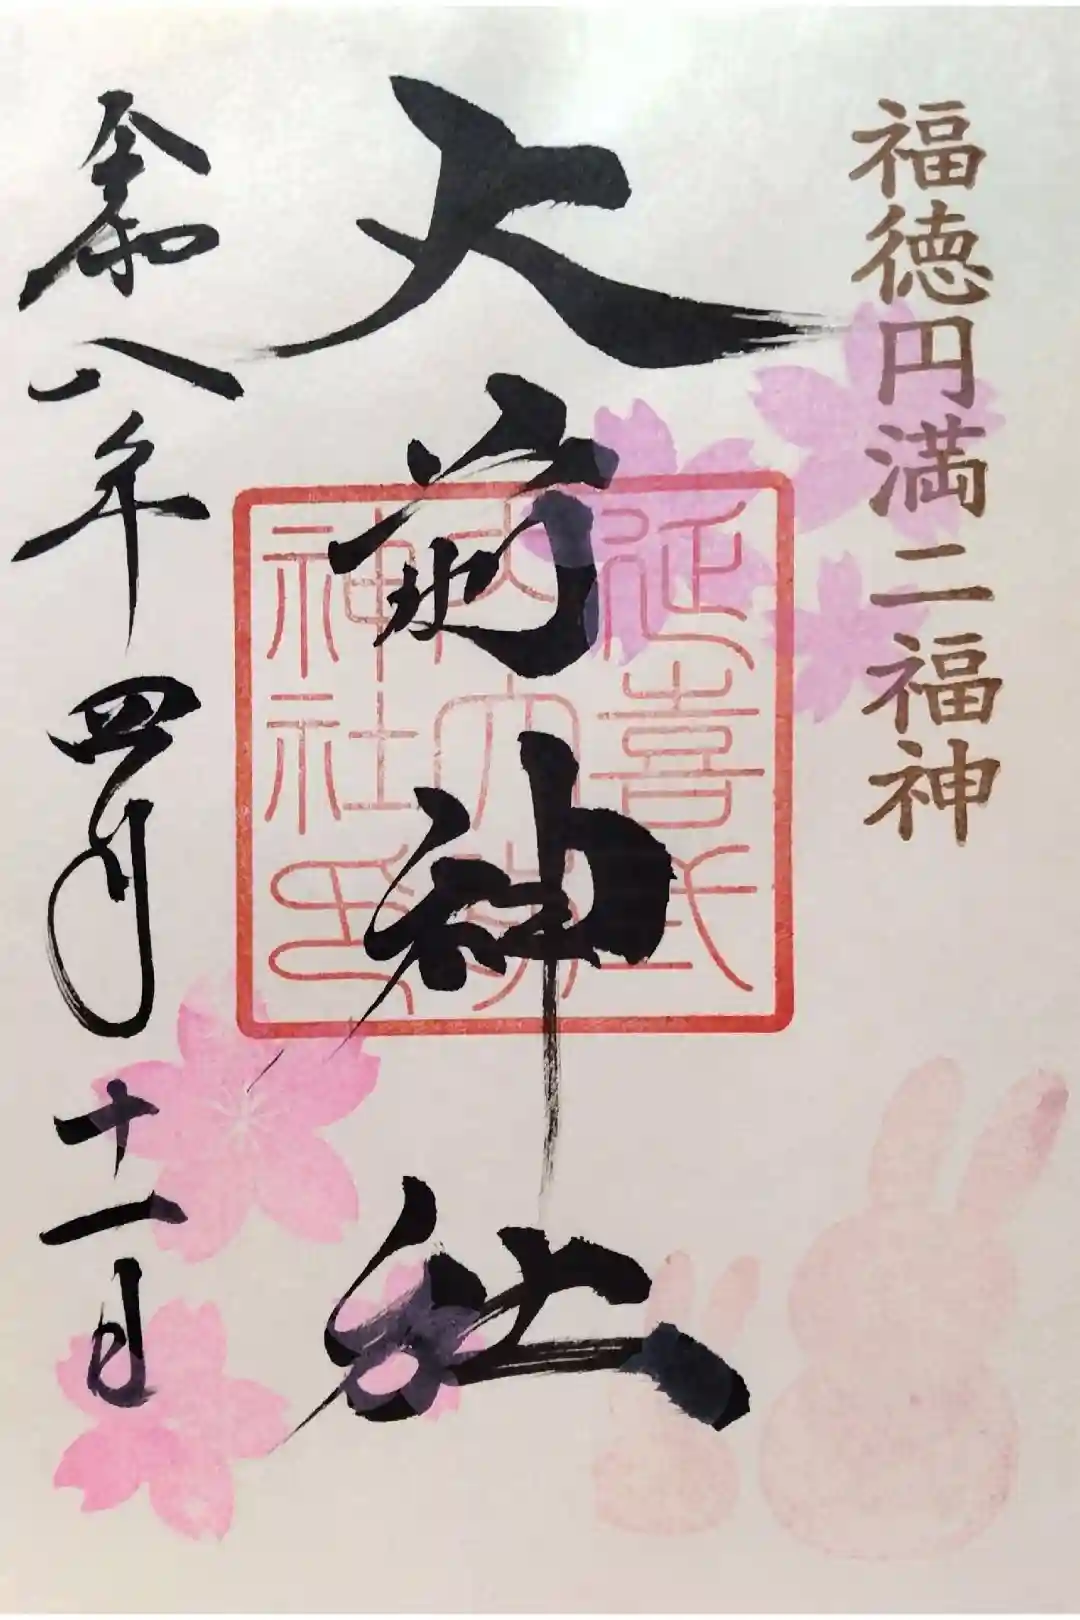 福徳円満二福神
大前神社
延喜式
内大前
神社印
令和八年四月十一日